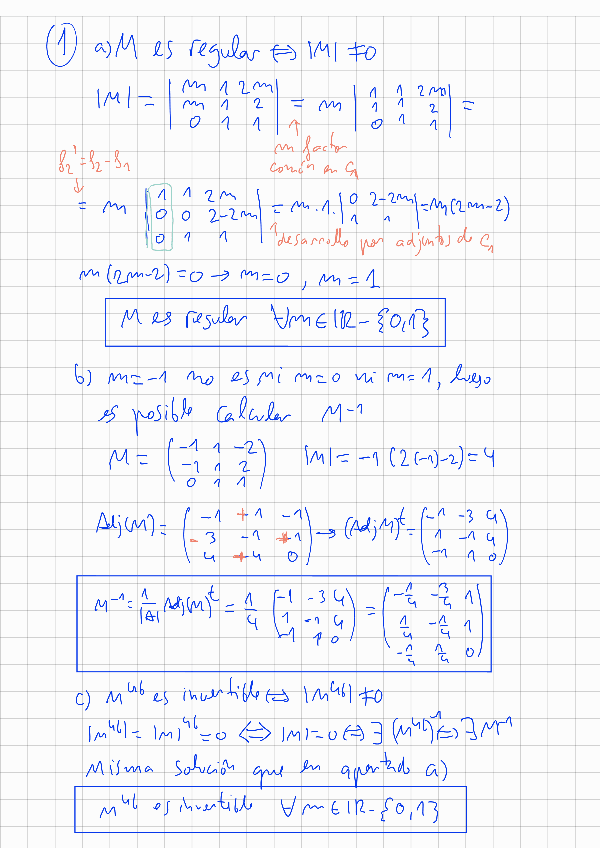 1 a) M es regular ⇔ |M| ≠ 0
|M| = | m 1 2m ; m 1 2 ; 0 1 1 | = m | 1 1 2m ; 1 1 2 ; 0 1 1 | =
m factor
común en C1
f2' = f2 - f1
= m | 1 1 2m ; 0 0 2-2m ; 0 1 1 | = m·1·| 0 2-2m ; 1 1 | = m(2m-2)
desarrollo por adjuntos de C1
m(2m-2) = 0 → m=0, m=1
M es regular ∀m∈IR-{0,1}
b) m=-1 no es ni m=0 ni m=1, luego
es posible calcular M-1
M = ( -1 1 -2 ; -1 1 2 ; 0 1 1 ) |M| = -1 (2(-1)-2) = 4
Adj(M) = ( -1 +1 -1 ; -3 -1 +1 ; 4 +4 0 ) → (Adj M)^t = ( -1 -3 4 ; 1 -1 4 ; -1 1 0 )
M^-1 = 1/|A| Adj(M)^t = 1/4 ( -1 -3 4 ; 1 -1 4 ; -1 1 0 ) = ( -1/4 -3/4 1 ; 1/4 -1/4 1 ; -1/4 1/4 0 )
c) M^46 es invertible ⇔ |M^46| ≠ 0
|M^46| = |M|^46 = 0 ⇔ |M| = 0 ⇔ ∃ (M^46)^-1 ⇔ ∃ M^-1
Misma solución que en apartado a)
M^46 es invertible ∀m∈IR-{0,1}